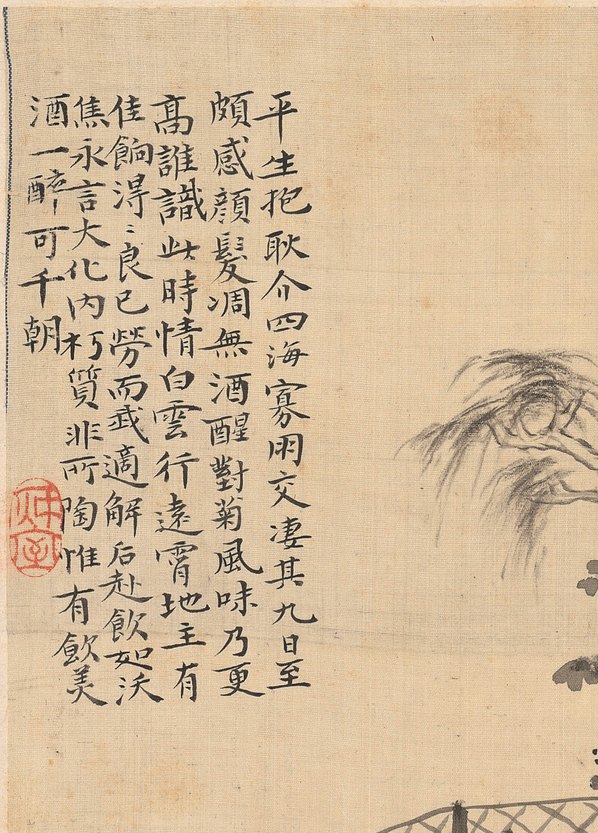 平生抱耿介四海寡朋交凄其九日至
頗感顏髮凋無酒醒對菊風味乃更
高誰識此時情白雲行遠霄地主有
佳餉得〻良已勞而我適解后赴飲如沃
焦永言大化內朽質非所陶惟有飲美
酒一醉可千朝